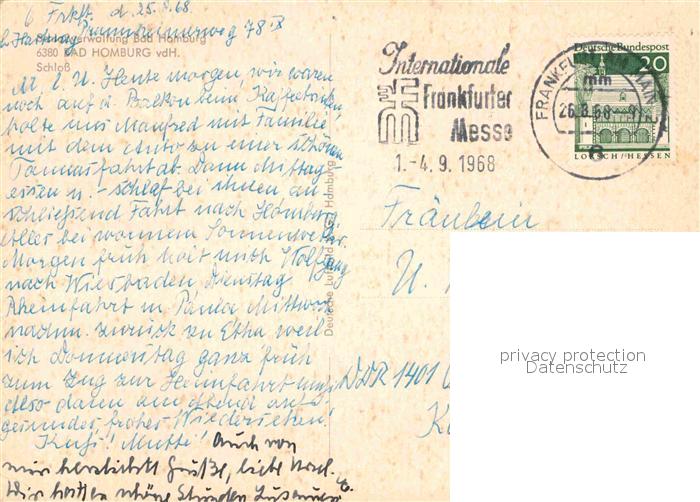 6 Frkft. d. 25.8.68.
Praunheimerweg 78
Kurverwaltung Bad Homburg
6380 BAD HOMBURG vdH.
Schloß
M. l. U. Heute morgen, wir waren
noch auf d. Balkon beim Kaffeetrinken,
holte uns Manfred mit Familie
mit dem Auto zu einer schönen
Taunusfahrt ab. Dann Mittag-
essen u. -schlaf bei ihnen an-
schließend Fahrt nach Homburg,
alles bei warmem Sonnenwetter.
Morgen früh holt mich Wolfgang
nach Wiesbaden, Dienstag
Rheinfahrt m. Paula Mittwoch
nachm. zurück zu Etha weil
ich Donnerstag ganz früh
zum Zug zur Heimfahrt muß.
Also dann am Abend auf
gesundes, frohes Wiedersehen!
Kuß! Mutti! Auch von
mir herzlichste Grüße, liebe
Wir hatten schöne Stunden zusammen
Internationale
Frankfurter
Messe
1.-4. 9. 1968
FRANKFURT AM MAIN
mm
26.8.68
6
Deutsche Bundespost
20
LORSCH/HESSEN
Fräulein
U.
DDR 1401
privacy protection
Datenschutz